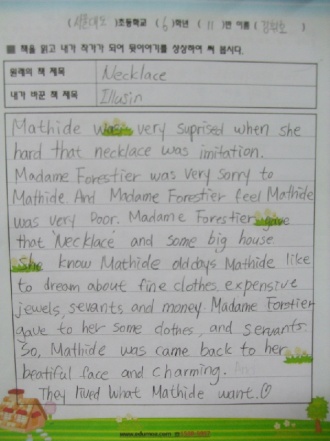 초등학교 ( 6 )학년 ( 11 )반 이름 (
책을 읽고 내가 작가가 되어 뒷이야기를 상상하여 써 봅시다.
원래의 책 제목 Necklace
내가 바꾼 책 제목 Illusin
Mathide was very suprised when she
hard that necklace was imitation.
Madame Forestier was very sorry to
Mathide And Madame Forestier feel Mathide
was very Poor. Madame Forestier gave
that 'Necklace' and some big house.
She know Mathide olddays Mathide like
to dream about fine clothes expensive
jewels, sevants and money Madame Forstier
gave to her some clothes, and servants.
So, Mathide was came back to her
beatiful face and charming.
They lived What Mathide want.